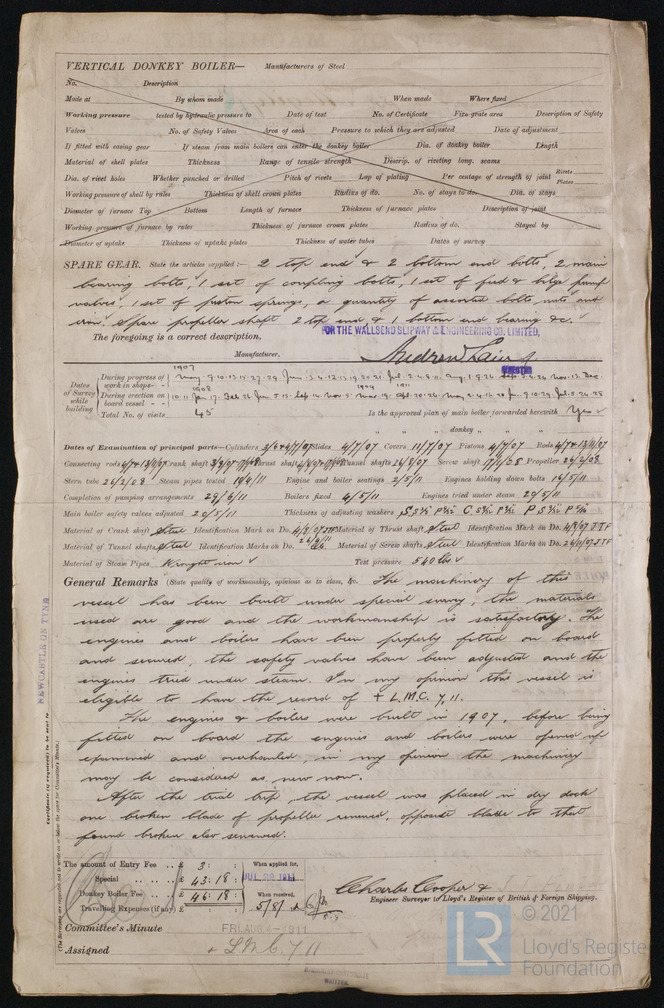 VERTICAL DONKEY BOILER— Manufacturers of Steel
No. Description
Made at By whom made When made Where fixed
Working pressure tested by hydraulic pressure to Date of test No. of Certificate Fire grate area Description of Safety
Valves No. of Safety Valves Area of each Pressure to which they are adjusted Date of adjustment
If fitted with easing gear If steam from main boilers can enter the donkey boiler Dia. of donkey boiler Length
Material of shell plates Thickness Range of tensile strength Descrip. of riveting long. seams
Dia. of rivet holes Whether punched or drilled Pitch of rivets Lap of plating Per centage of strength of joint Rivets Plates
Working pressure of shell by rules Thickness of shell crown plates Radius of do. No. of stays to do. Dia. of stays
Diameter of furnace Top Bottom Length of furnace Thickness of furnace plates Description of joint
Working pressure of furnace by rules Thickness of furnace crown plates Radius of do. Stayed by
Diameter of uptake Thickness of uptake plates Thickness of water tubes Dates of survey
SPARE GEAR. State the articles supplied:— 2 top end & 2 bottom end bolts, 2 main
bearing bolts, 1 set of coupling bolts, 1 set of feed & bilge pump
valves, 1 set of piston springs, a quantity of assorted bolts, nuts and
iron. Spare propeller shaft 2 top end & 1 bottom end bearing &c.
The foregoing is a correct description,
FOR THE WALLSEND SLIPWAY & ENGINEERING CO. LIMITED,
Manufacturer. Andrew Laing
Dates of Survey while building
1907
During progress of work in shops--
1908
During erection on board vessel --
Total No. of visits 45
Is the approved plan of main boiler forwarded herewith Yes
" " " donkey " " "
Dates of Examination of principal parts—Cylinders Slides 4/7/07 Covers 11/7/07 Pistons 4/7/07 Rods
Connecting rods Crank shaft Thrust shaft Tunnel shafts Screw shaft Propeller 26/2/08
Stern tube 26/2/08 Steam pipes tested 19/4/11 Engine and boiler seatings 2/5/11 Engines holding down bolts 19/5/11
Completion of pumping arrangements 29/6/11 Boilers fixed 4/5/11 Engines tried under steam 29/5/11
Main boiler safety valves adjusted 20/5/11 Thickness of adjusting washers
Material of Crank shaft Steel Identification Mark on Do. Material of Thrust shaft Steel Identification Mark on Do. 4/9/07 JTF
Material of Tunnel shafts Steel Identification Marks on Do. Material of Screw shafts Steel Identification Marks on Do. 26/11/07 JTF
Material of Steam Pipes Wrought iron Test pressure 540 lbs
General Remarks (State quality of workmanship, opinions as to class, &c. The machinery of this
vessel has been built under special survey, the materials
used are good and the workmanship is satisfactory. The
engines and boilers have been properly fitted on board
and secured, the safety valves have been adjusted and the
engines tried under steam. In my opinion this vessel is
eligible to have the record of + L.M.C. 7,11.
The engines & boilers were built in 1907, before being
fitted on board the engines and boilers were opened up
examined and overhauled, in my opinion the machinery
may be considered as new now.
After the trial trip, the vessel was placed in dry dock
one broken blade of propeller renewed, opposite blade to that
found broken also renewed.
NEWCASTLE ON TYNE
Certificate (if required) to be sent to
(The Surveyors are requested not to write on or below the space for Committee's Minute.)
The amount of Entry Fee .. £ 3 : : When applied for,
Special .. £ 43 : 18 : JUL 28 1911
Donkey Boiler Fee .. £ 46 : 18 : When received,
Travelling Expenses (if any) £ : : 5/8/11
Charles Cooper &
Engineer Surveyor to Lloyd's Register of British & Foreign Shipping.
Committee's Minute FRI. AUG 4 - 1911
Assigned + L.M.C. 7 11
LR
© 2021
Lloyd's Register
Foundation